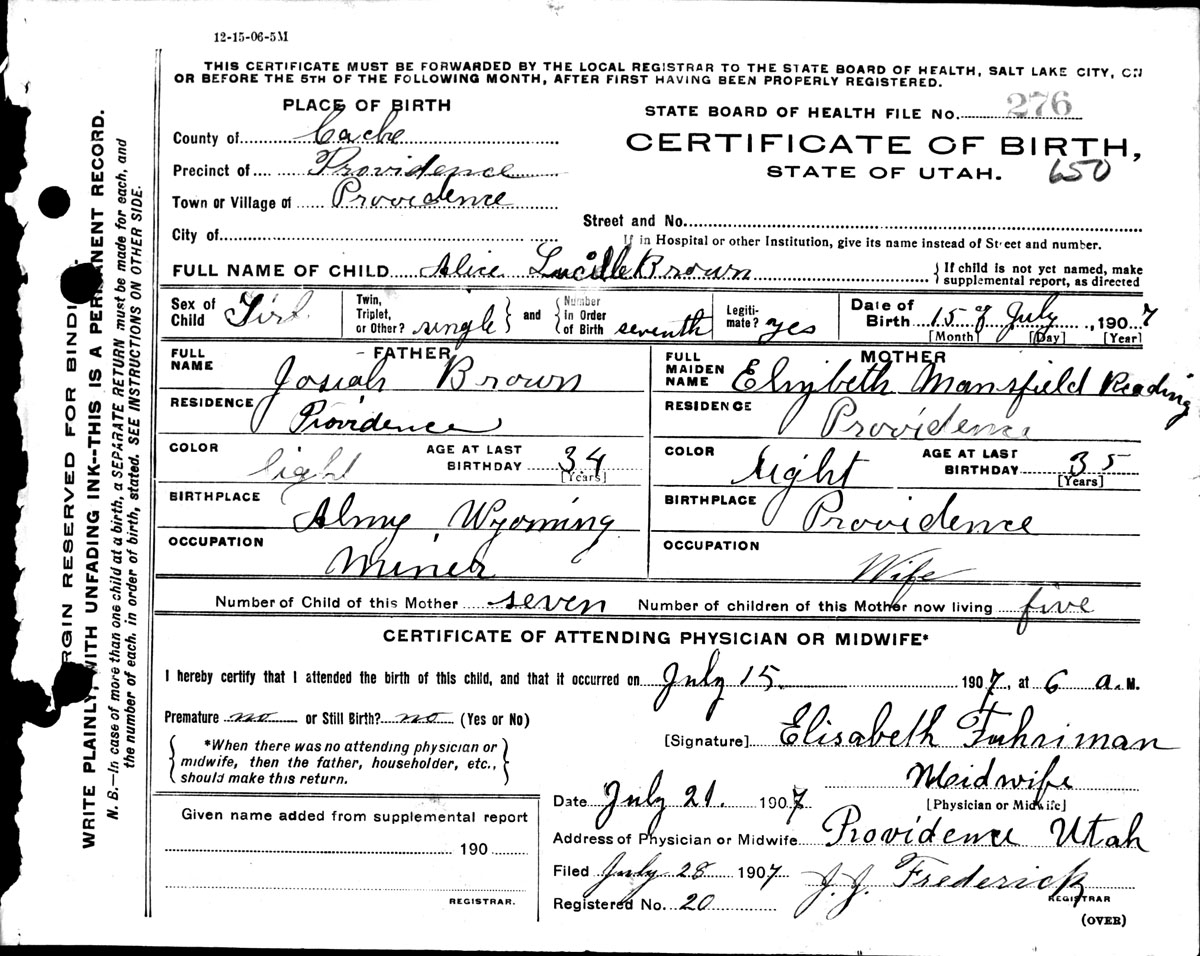 12-15-06-5M
THIS CERTIFICATE MUST BE FORWARDED BY THE LOCAL REGISTRAR TO THE STATE BOARD OF HEALTH, SALT LAKE CITY, ON
OR BEFORE THE 5TH OF THE FOLLOWING MONTH, AFTER FIRST HAVING BEEN PROPERLY REGISTERED.
PLACE OF BIRTH
County of Cache
Precinct of Providence
Town or Village of Providence
City of
STATE BOARD OF HEALTH FILE No. 276
CERTIFICATE OF BIRTH,
STATE OF UTAH.
650
Street and No.
If in Hospital or other Institution, give its name instead of Street and number.
FULL NAME OF CHILD Alice Lucille Brown
If child is not yet named, make
supplemental report, as directed
Sex of Child Girl
Twin, Triplet, or Other? single and Number in Order of Birth seventh
Legiti-mate? yes
Date of Birth 15 of July, 1907
[Month] [Day] [Year]
FATHER
FULL NAME Josiah Brown
RESIDENCE Providence
COLOR light AGE AT LAST BIRTHDAY 34
[Years]
BIRTHPLACE Almy Wyoming
OCCUPATION Miner
MOTHER
FULL MAIDEN NAME Elizibeth Mansfield Reading
RESIDENCE Providence
COLOR Light AGE AT LAST BIRTHDAY 35
[Years]
BIRTHPLACE Providence
OCCUPATION Wife
Number of Child of this Mother seven Number of children of this Mother now living five
CERTIFICATE OF ATTENDING PHYSICIAN OR MIDWIFE*
I hereby certify that I attended the birth of this child, and that it occurred on July 15 1907, at 6 a.M.
Premature no or Still Birth? no (Yes or No)
*When there was no attending physician or
midwife, then the father, householder, etc.,
should make this return.
[Signature] Elisabeth Fuhriman
Midwife
[Physician or Midwife]
Date July 21. 1907
Address of Physician or Midwife Providence Utah
Filed July 28 1907 J. J. Frederick
REGISTRAR
Registered No. 20
(OVER)
Given name added from supplemental report
190
REGISTRAR.
RGIN RESERVED FOR BINDI
WRITE PLAINLY, WITH UNFADING INK--THIS IS A PERMANENT RECORD.
N. B.—In case of more than one child at a birth, a SEPARATE RETURN must be made for each, and
the number of each, in order of birth, stated. SEE INSTRUCTIONS ON OTHER SIDE.